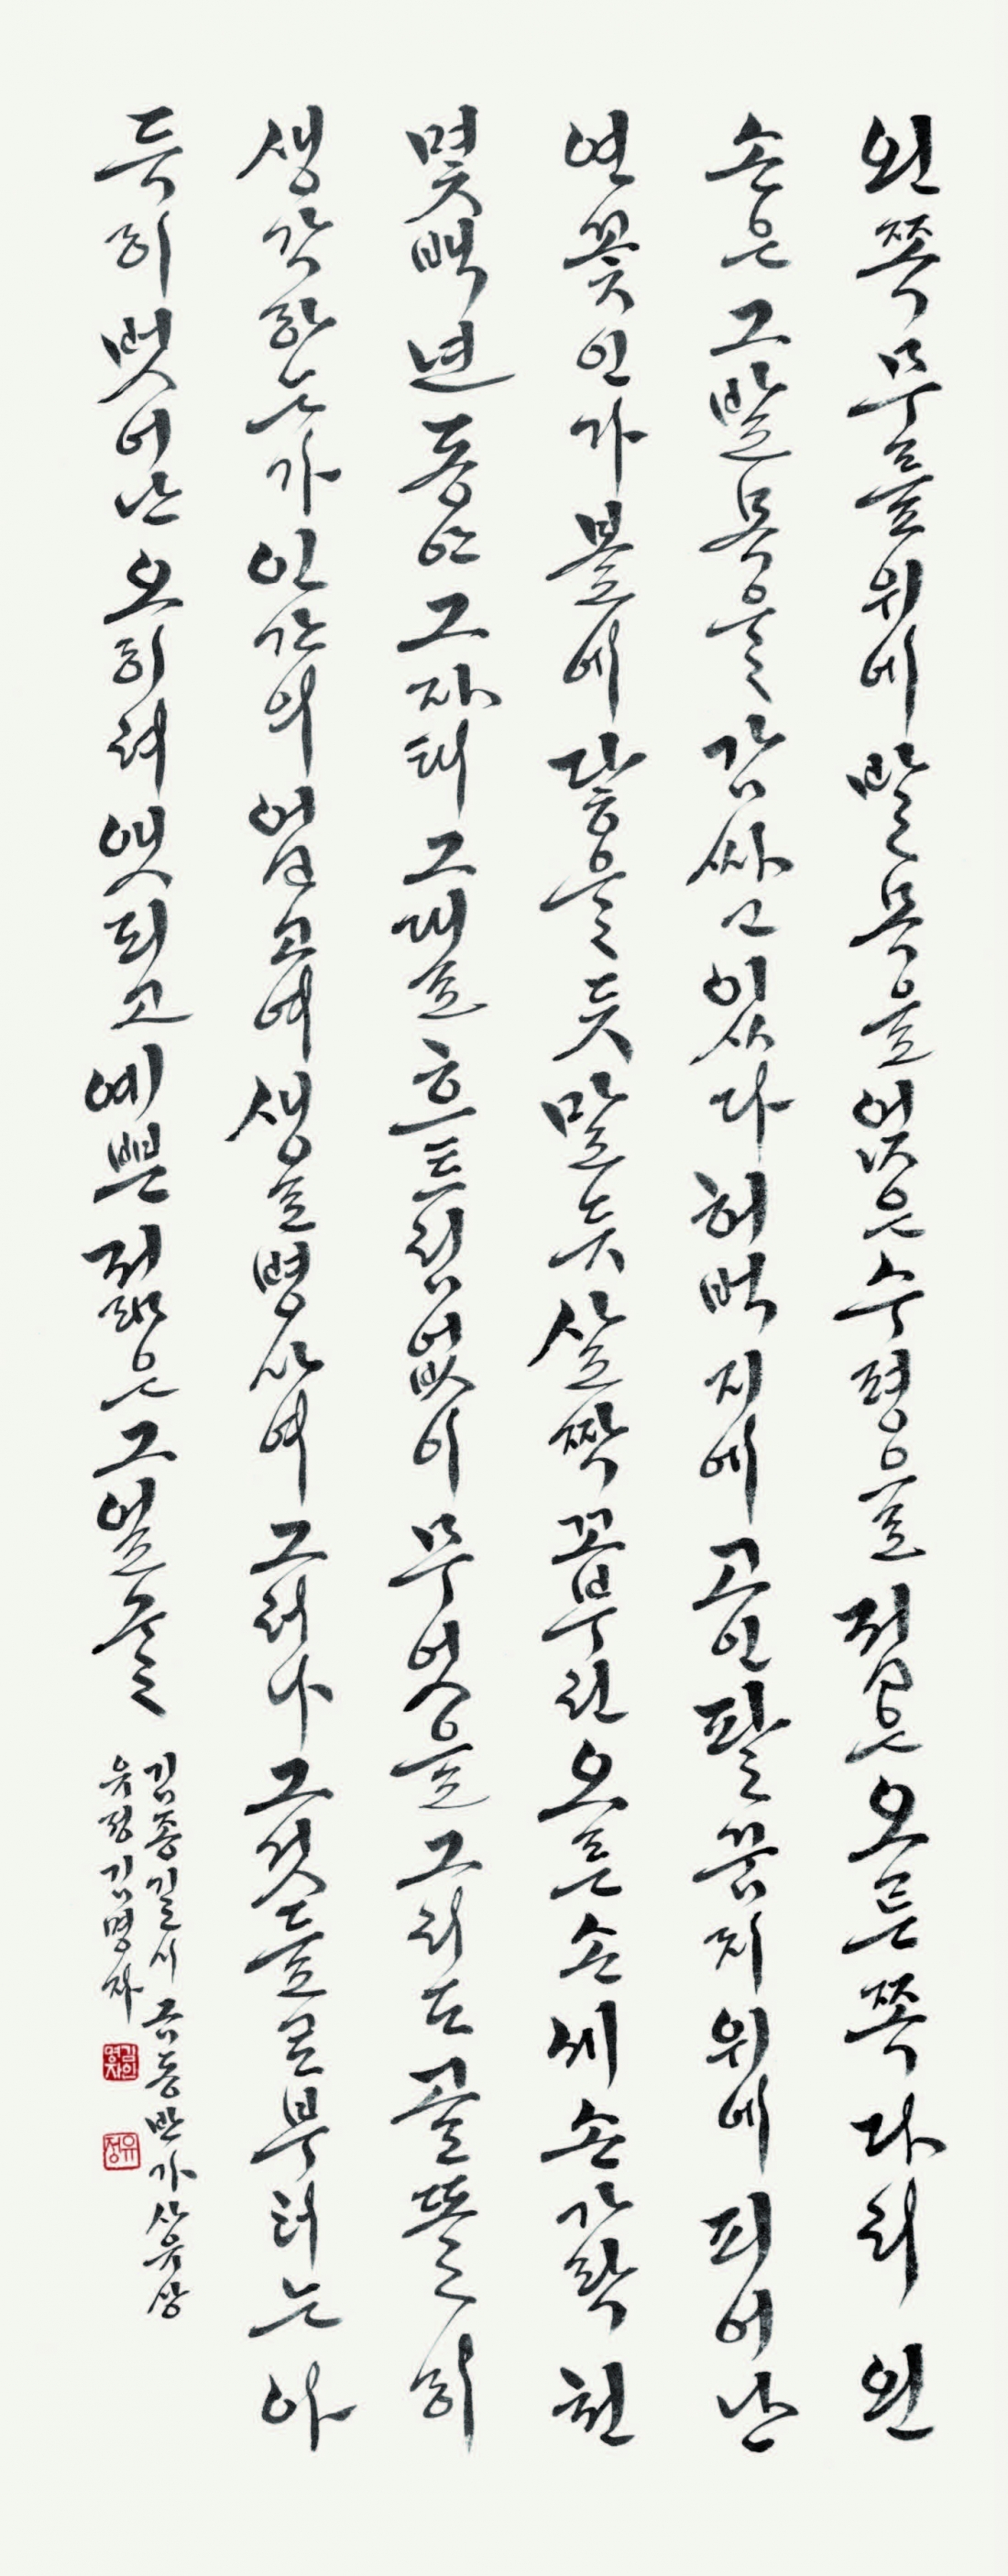 왼쪽 무릎 위에 발목을 얹은 수평으로 접은 오른쪽 다리 왼
손은 그 발목을 감싸고 있다 허벅지에 고인 팔꿈치 위에 피어난
연꽃인가 볼에 닿을 듯 말 듯 살짝 꼬부린 오른손 세 손가락 천
몇백 년 동안 그 자태 그대로 흐트러짐 없이 무엇을 그리도 골똘히
생각하는가 인간의 업고며 생로병사며 그러나 그것들로부터는 아
득히 벗어난 오히려 앳되고 예쁜 젊은 그 얼굴
김종길 시 금동반가사유상
유정 김명자
유정